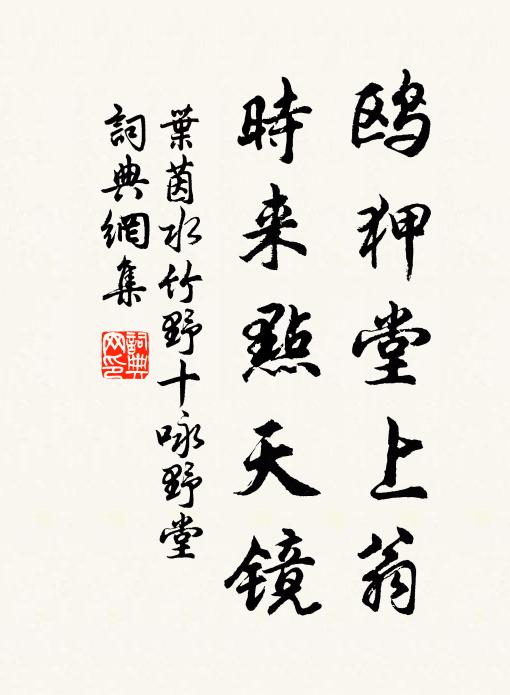 鸥狎堂上翁
時来點天镜
葉茵水竹野十咏野堂
詞典網集
詞典网印